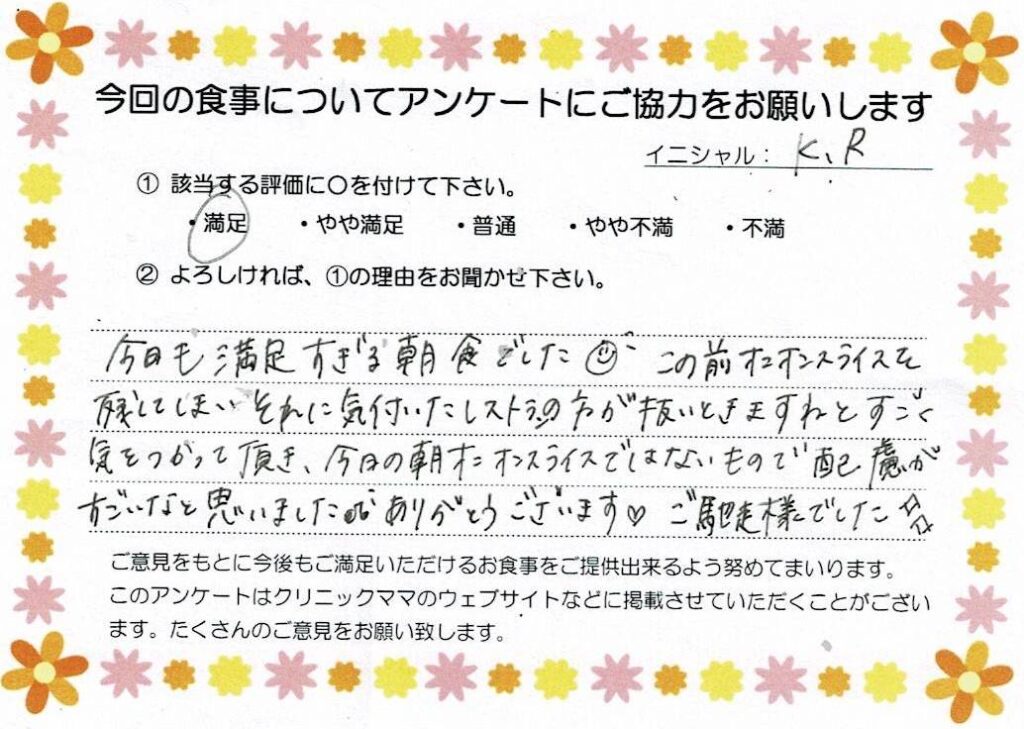 今回の食事についてアンケートにご協力をお願いします
イニシャル： K、R
① 該当する評価に〇を付けて下さい。
・満足 ・やや満足 ・普通 ・やや不満 ・不満
② よろしければ、①の理由をお聞かせ下さい。
今日も満足すぎる朝食でした この前オニオンスライスを
残してしまい それに気付いたレストランの方が 抜いときますねとすごく
気をつかって頂き、今日の朝オニオンスライスではないもので 配慮が
すごいなと思いました ありがとうございます♡ ご馳走様でした☆☆
ご意見をもとに今後もご満足いただけるお食事をご提供出来るよう努めてまいります。
このアンケートはクリニックママのウェブサイトなどに掲載させていただくことがござい
ます。たくさんのご意見をお願い致します。